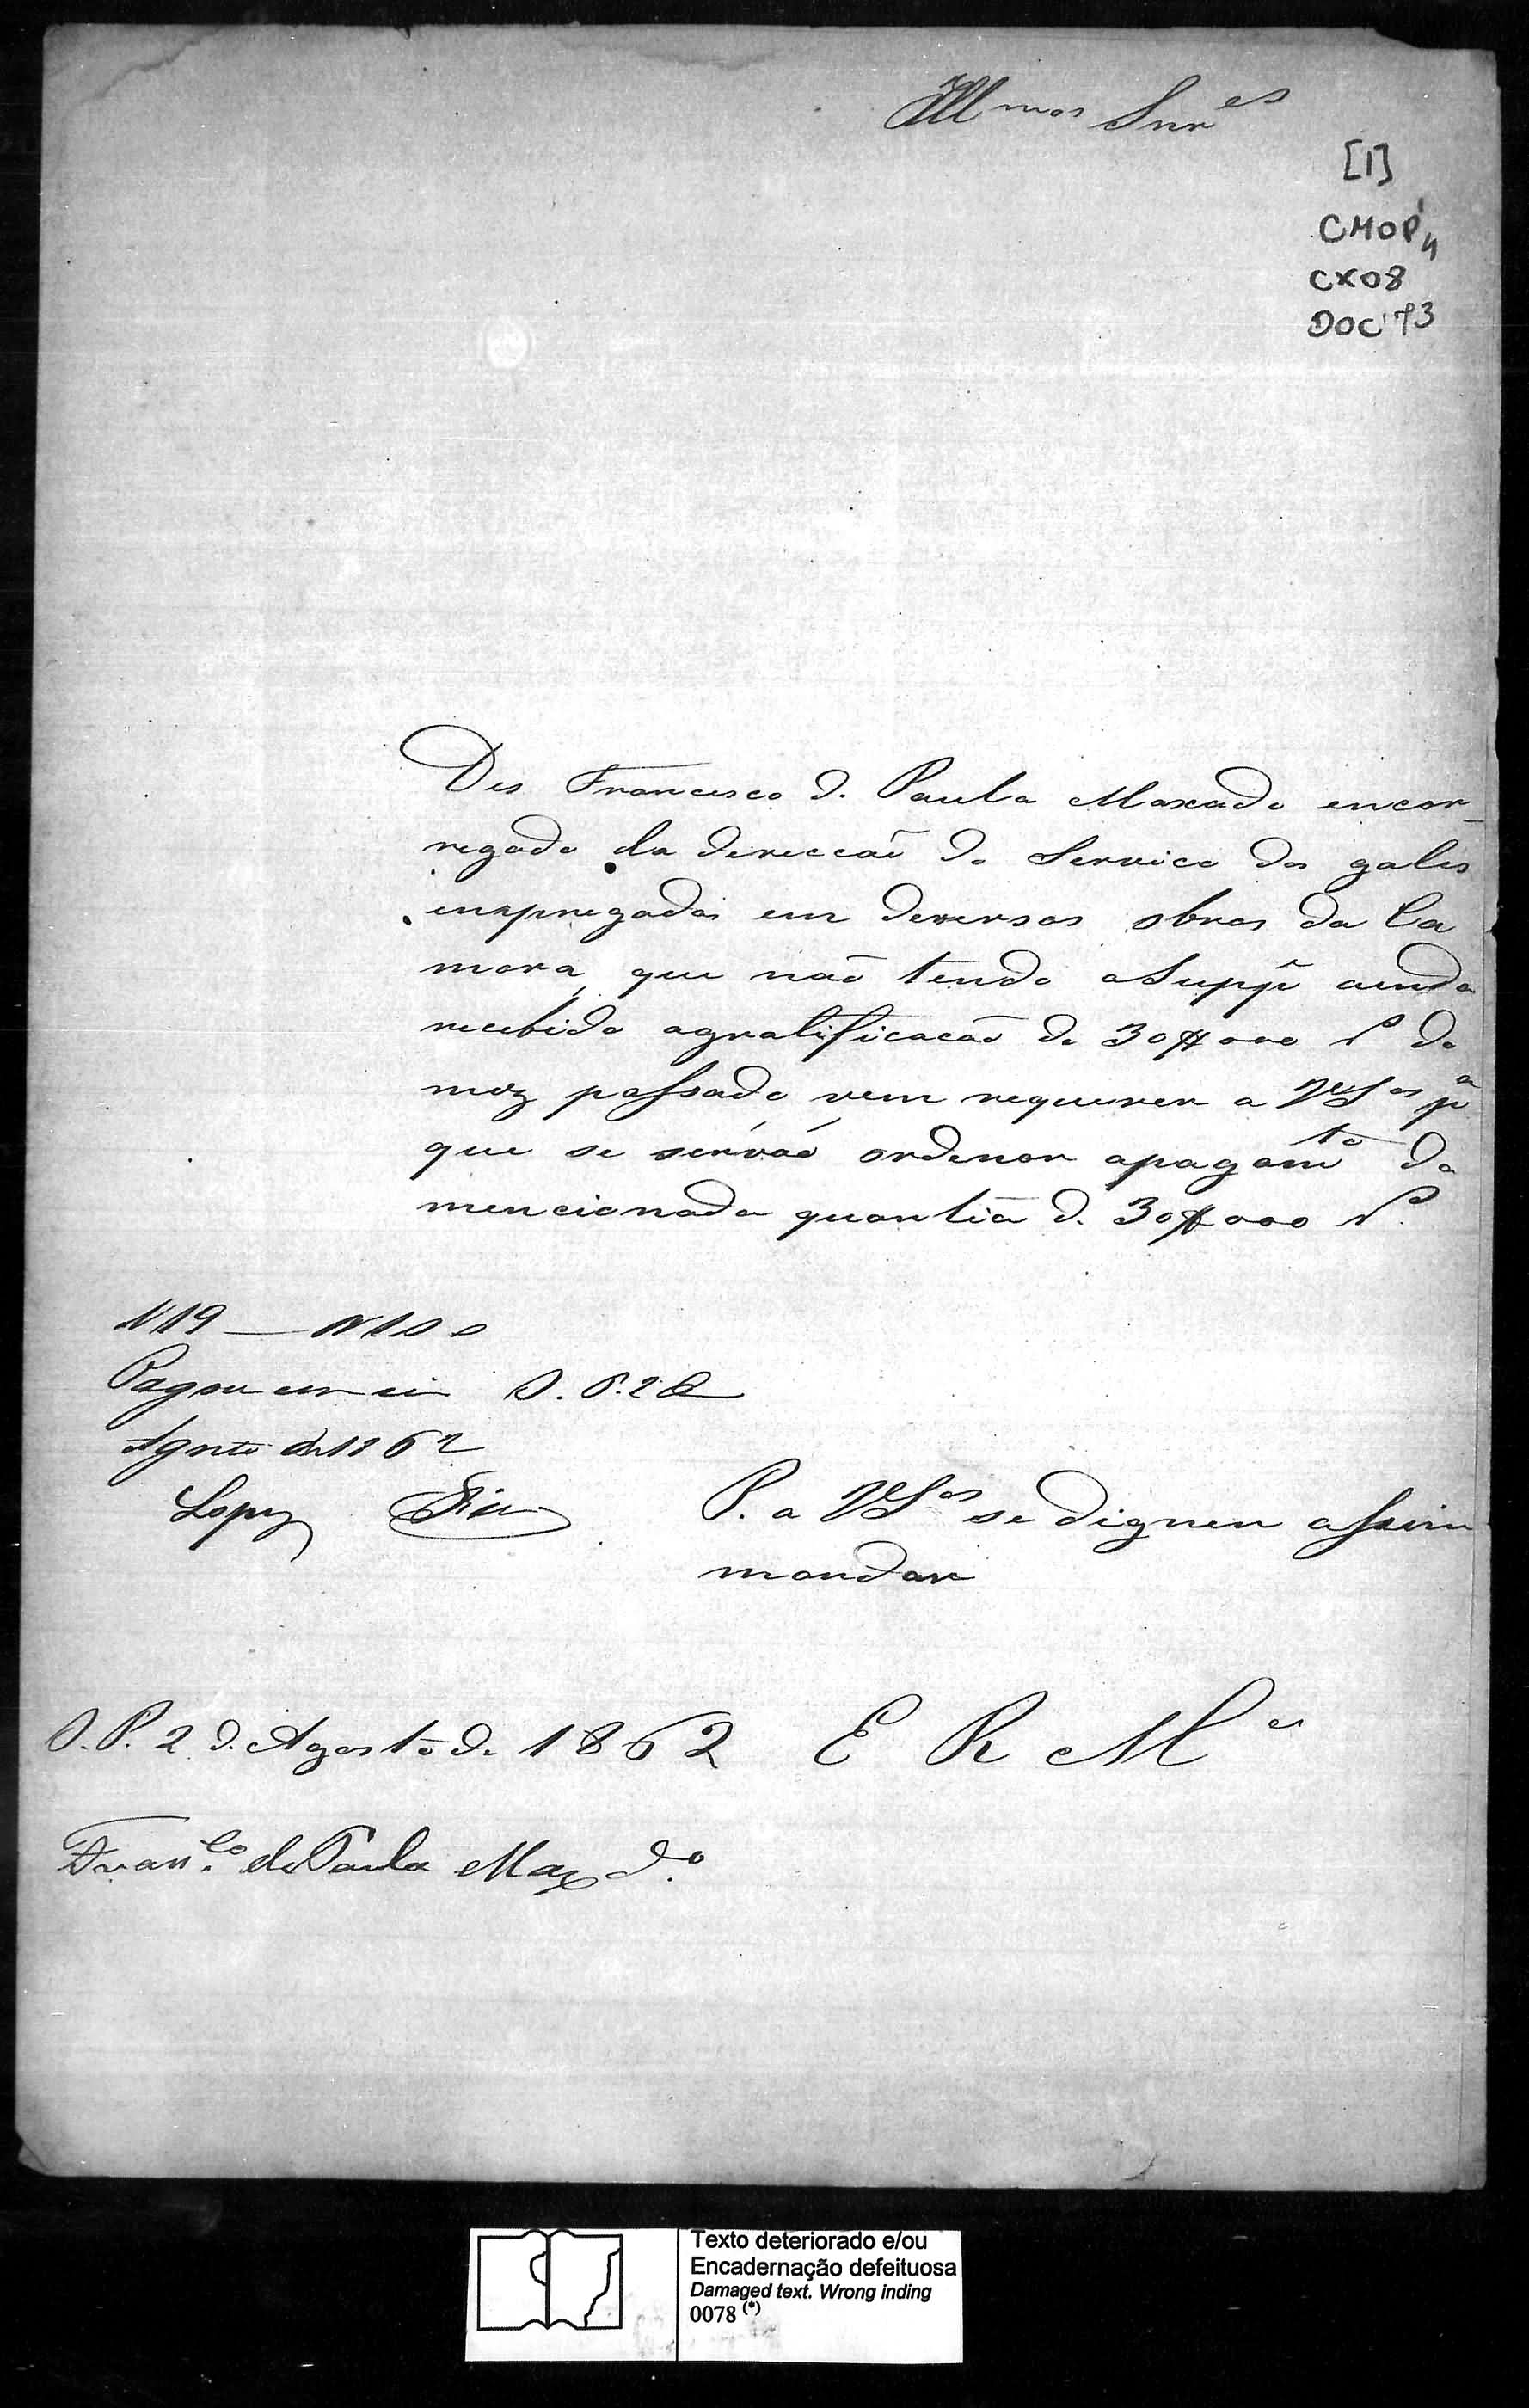 Illmos Snres
[1]
CMOP
CX08
DOC 73
Dis Francisco d. Paula Maxado encar-
regado da direccaõ do Servico dos gales
empregados em deversas obras da Ca
mara, que naõ tendo o Suppe ainda
recebido agratificacaõ de 30$000 rs do
mez passado vem requerer a VSas pa
que se sérváõ ordenar apagamto da
mencionada quantia d. 30$000 rs.
N19
Pagou em O. P. 2 de
Agosto de 1862
Lopes
P. a VSas se dignem assim
mandar
O. P. 2 d. Agosto d. 1862 E R Mce
Franco de Paula Maxdo
Texto deteriorado e/ou
Encadernação defeituosa
Damaged text. Wrong inding
0078 (*)